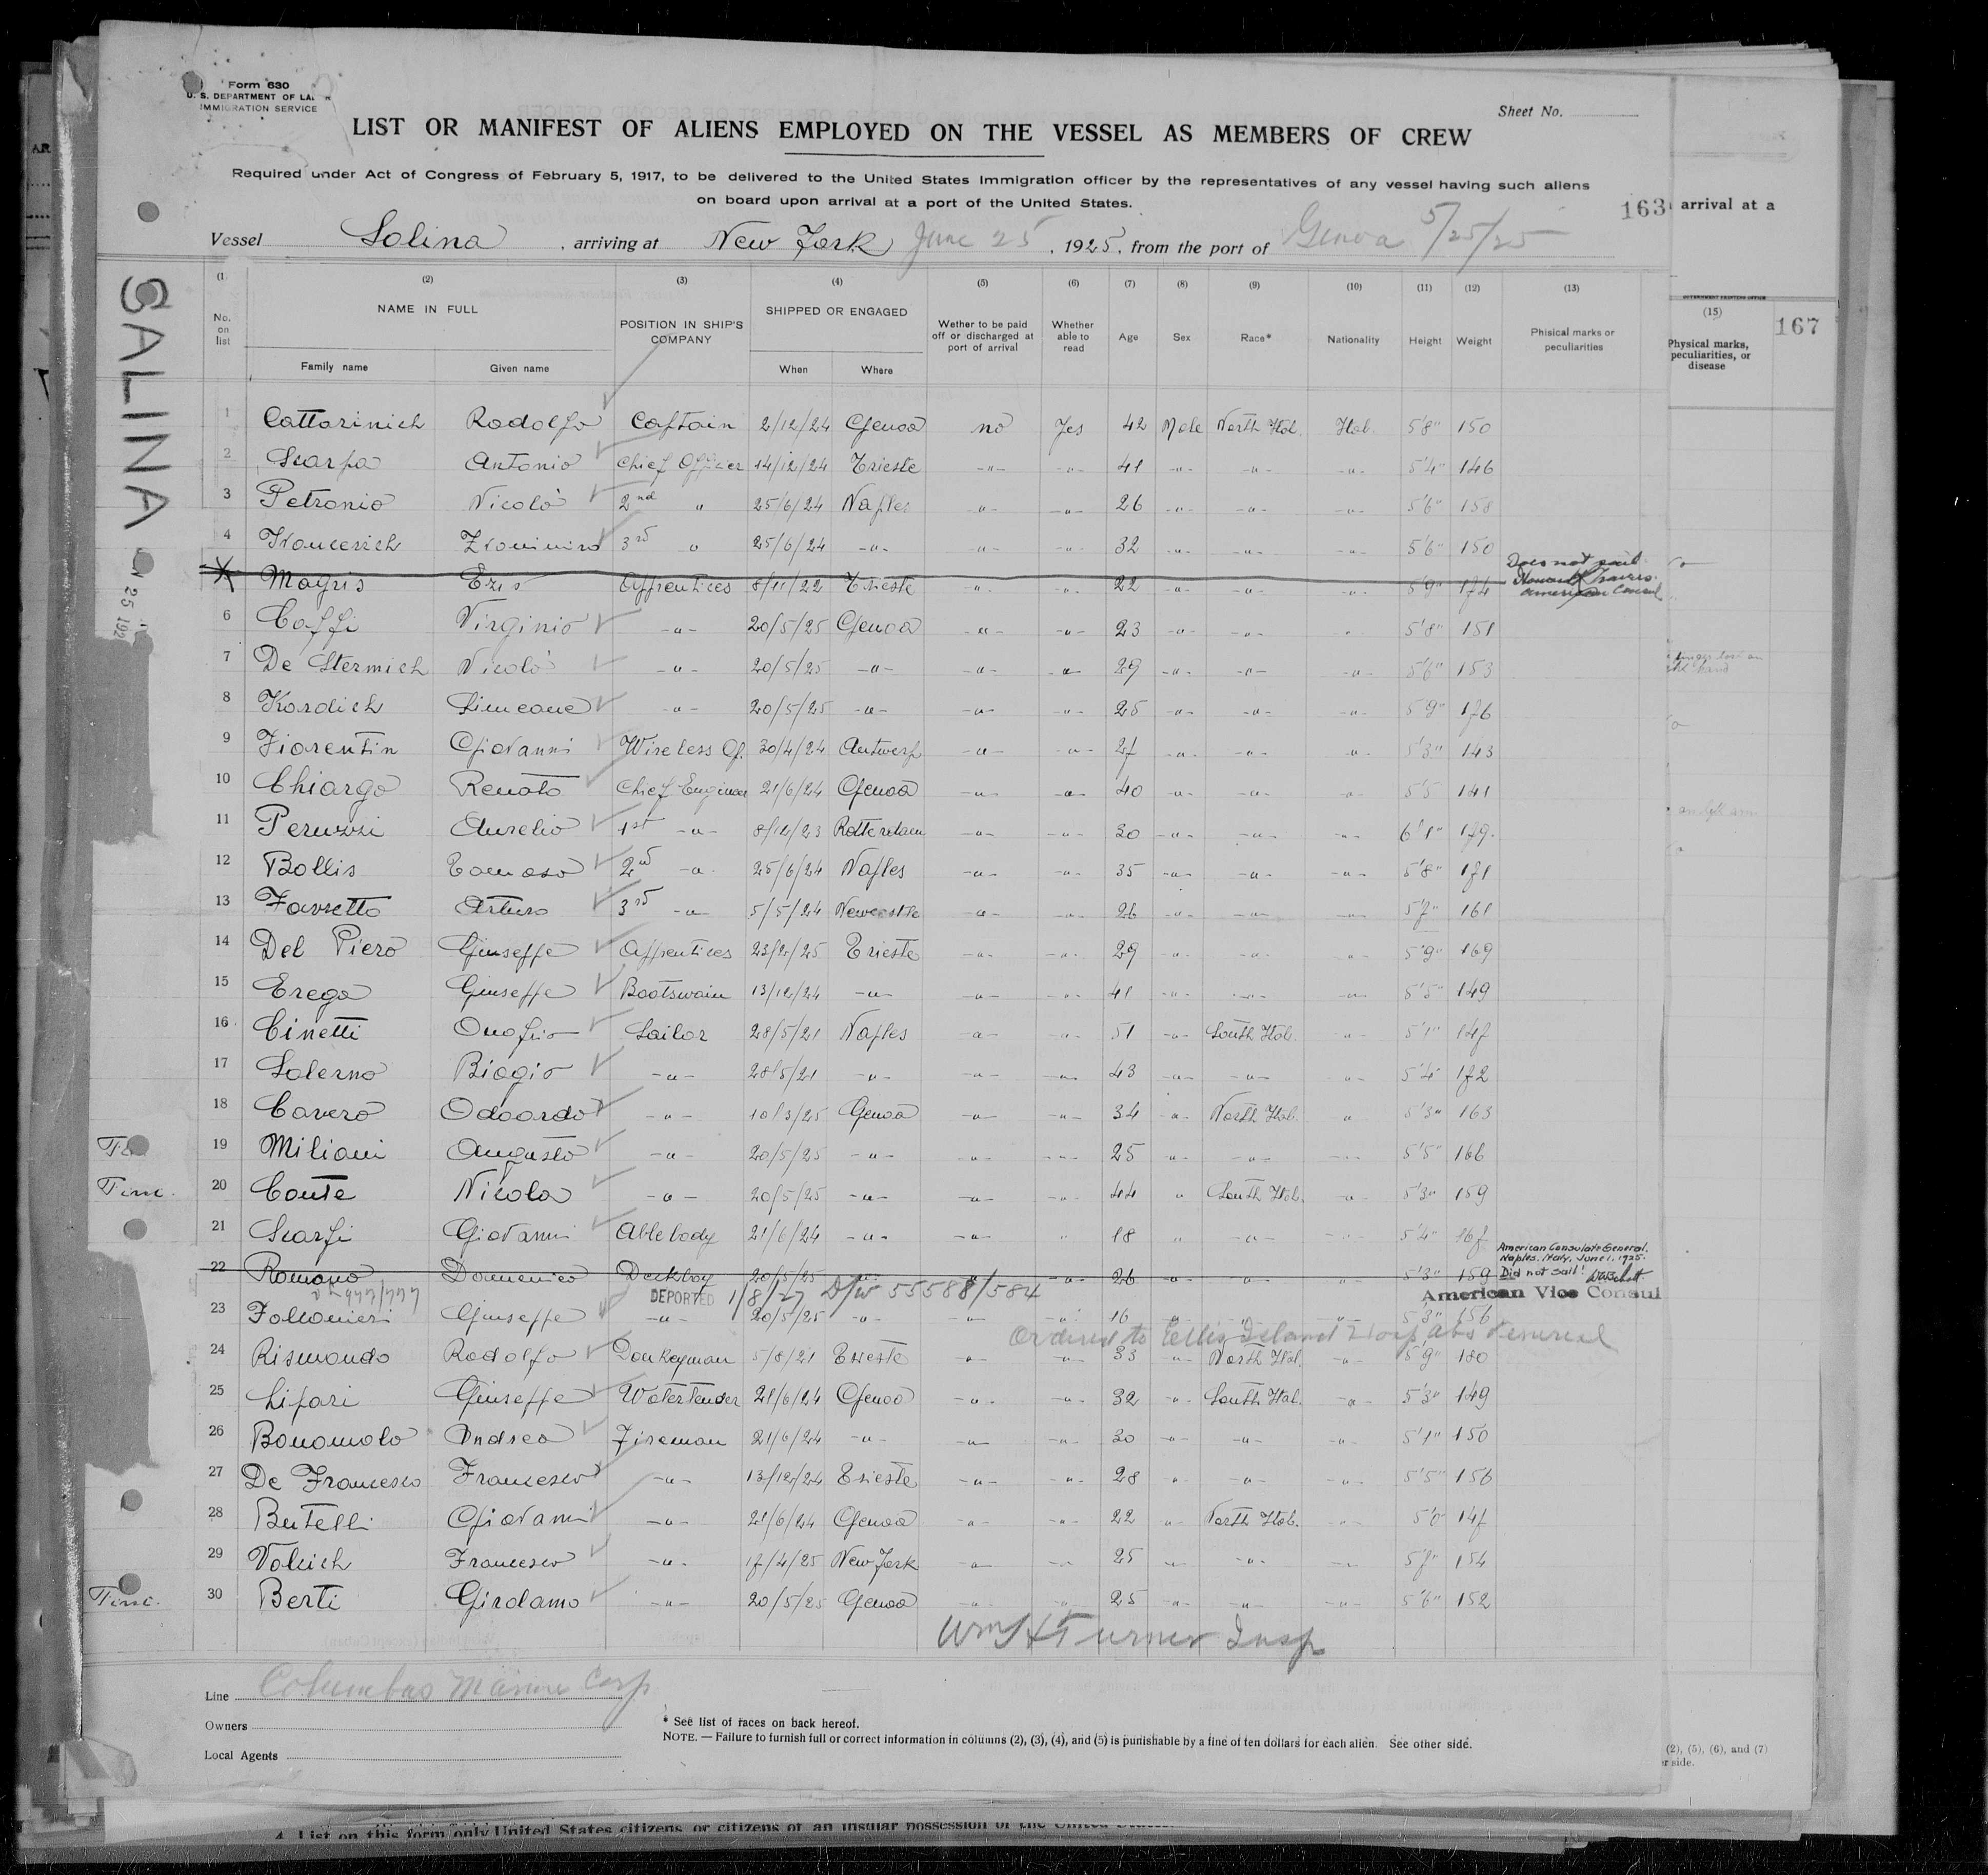 Form 630
U. S. DEPARTMENT OF LA
IMMIGRATION SERVICE
Sheet No.
LIST OR MANIFEST OF ALIENS EMPLOYED ON THE VESSEL AS MEMBERS OF CREW
Required under Act of Congress of February 5, 1917, to be delivered to the United States Immigration officer by the representatives of any vessel having such aliens
on board upon arrival at a port of the United States.
163 arrival at a
Vessel Salina , arriving at New York June 25 , 1925, from the port of Genoa 5/25/25
SALINA
25 192
(1 (2) (3) (4) (5) (6) (7) (8) (9) (10) (11) (12) (13)
No. on list NAME IN FULL POSITION IN SHIP'S COMPANY SHIPPED OR ENGAGED Wether to be paid off or discharged at port of arrival Whether able to read Age Sex Race* Nationality Height Weight Phisical marks or peculiarities
Family name Given name When Where
(15) 167
Physical marks, peculiarities, or disease
1 Cattarinich Rodolfo Captain 2/12/24 Genoa no Yes 42 Male North Ital. Ital. 5'8" 150
2 Scarpa Antonio Chief Officer 14/12/24 Trieste -"- -"- 41 -"- -"- -"- 5'4" 146
3 Petronio Nicolò 2nd " 25/6/24 Naples -"- -"- 26 -"- -"- -"- 5'6" 158
4 3rd " 25/6/24 -"- -"- -"- 32 -"- -"- -"- 5'6" 150
Magris Ezio Apprentices 8/11/22 Trieste -"- -"- 22 -"- -"- -"- 5'9" 174 Does not sail. American Consul
6 Coffi Virginio -"- 20/5/25 Genoa -"- -"- 23 -"- -"- " 5'8" 151
7 De Stermich Nicolò -"- 20/5/25 -"- -"- -"- 29 -"- -"- -"- 5'6" 153
8 Kordich Simeone -"- 20/5/25 -"- -"- -"- 25 -"- -"- -"- 5'9" 176
9 Fiorentin Giovanni Wireless Of. 30/4/24 Antwerp -"- -"- 27 -"- -"- -"- 5'3" 143
10 Chiargo Renato Chief Engineer 21/6/24 Genoa -"- -"- 40 -"- -"- -"- 5'5 141
11 Peruzzi Aurelio 1st -"- 8/12/23 Rotterdam -"- -"- 30 -"- -"- -"- 6'1" 179.
12 Bollis Tomaso 2nd -"- 25/6/24 Naples -"- -"- 35 -"- -"- -"- 5'8" 171
13 Favretto Arturo 3rd -"- 5/5/24 Newcastle -"- -"- 26 -"- -"- -"- 5'7" 161
14 Del Piero Giuseppe Apprentices 23/2/25 Trieste -"- -"- 29 -"- -"- -"- 5'9" 169
15 Erega Giuseppe Bootswain 13/12/24 -"- -"- -"- 41 -"- -"- -"- 5'5" 149
16 Cinetti Onofrio Sailor 28/5/21 Naples -"- -"- 51 -"- South Ital. -"- 5'1" 147
17 Salerno Biagio -"- 28/5/21 -"- -"- -"- 43 -"- -"- -"- 5'4" 172
18 Cavero Odoardo -"- 10/3/25 Genoa -"- -"- 34 -"- North Ital. " 5'3" 163
19 Miliani Augusto -"- 20/5/25 -"- -"- -"- 25 -"- -"- -"- 5'5" 166
20 Conte Nicola -"- 20/5/25 -"- -"- -"- 44 " South Ital. -"- 5'3" 159
21 Scarfi Giovanni Ablebody 21/6/24 -"- -"- " 18 " -"- -"- 5'4" 167
American Consulate General.
Naples. Italy, June 1. 1925.
22 Romano Domenico Deckboy 20/5/25 -"- -"- -"- 26 -"- -"- " 5'3" 159 Did not sail!
DEPORTED 1/8/27 55588/584 American Vice Consul
23 Giuseppe -"- 20/5/25 -"- -"- -"- 16 5'3" 156
Ordered to Ellis Island Hosp venereal
24 Rismondo Rodolfo Donkeyman 5/8/21 Trieste -"- -"- 33 -"- North Ital. -"- 5'9" 180
25 Lipari Giuseppe Watertender 21/6/24 Genoa -"- -"- 32 -"- South Ital. -"- 5'3" 149
26 Bonomolo Andrea Fireman 21/6/24 -"- -"- -"- 30 -"- -"- -"- 5'1" 150
27 De Francesco Francesco -"- 13/12/24 Trieste -"- -"- 28 " -"- -"- 5'5" 156
28 Butelli Giovanni -"- 21/6/24 Genoa -"- -"- 22 " North Ital. -"- 5'0" 147
29 Volcich Francesco -"- 17/4/25 New York -"- -"- 25 -"- -"- -"- 5'7" 154
30 Berti Girolamo -"- 20/5/25 Genoa -"- -"- 25 -"- -"- -"- 5'6" 152
Wm H Turner Insp
Line Columbus Marine Corp
Owners
Local Agents
* See list of races on back hereof.
NOTE. — Failure to furnish full or correct information in columns (2), (3), (4), and (5) is punishable by a fine of ten dollars for each alien. See other side.
(2), (5), (6), and (7)
er side.
4. List on this form only United States citizens or citizens of an insular possession of the United